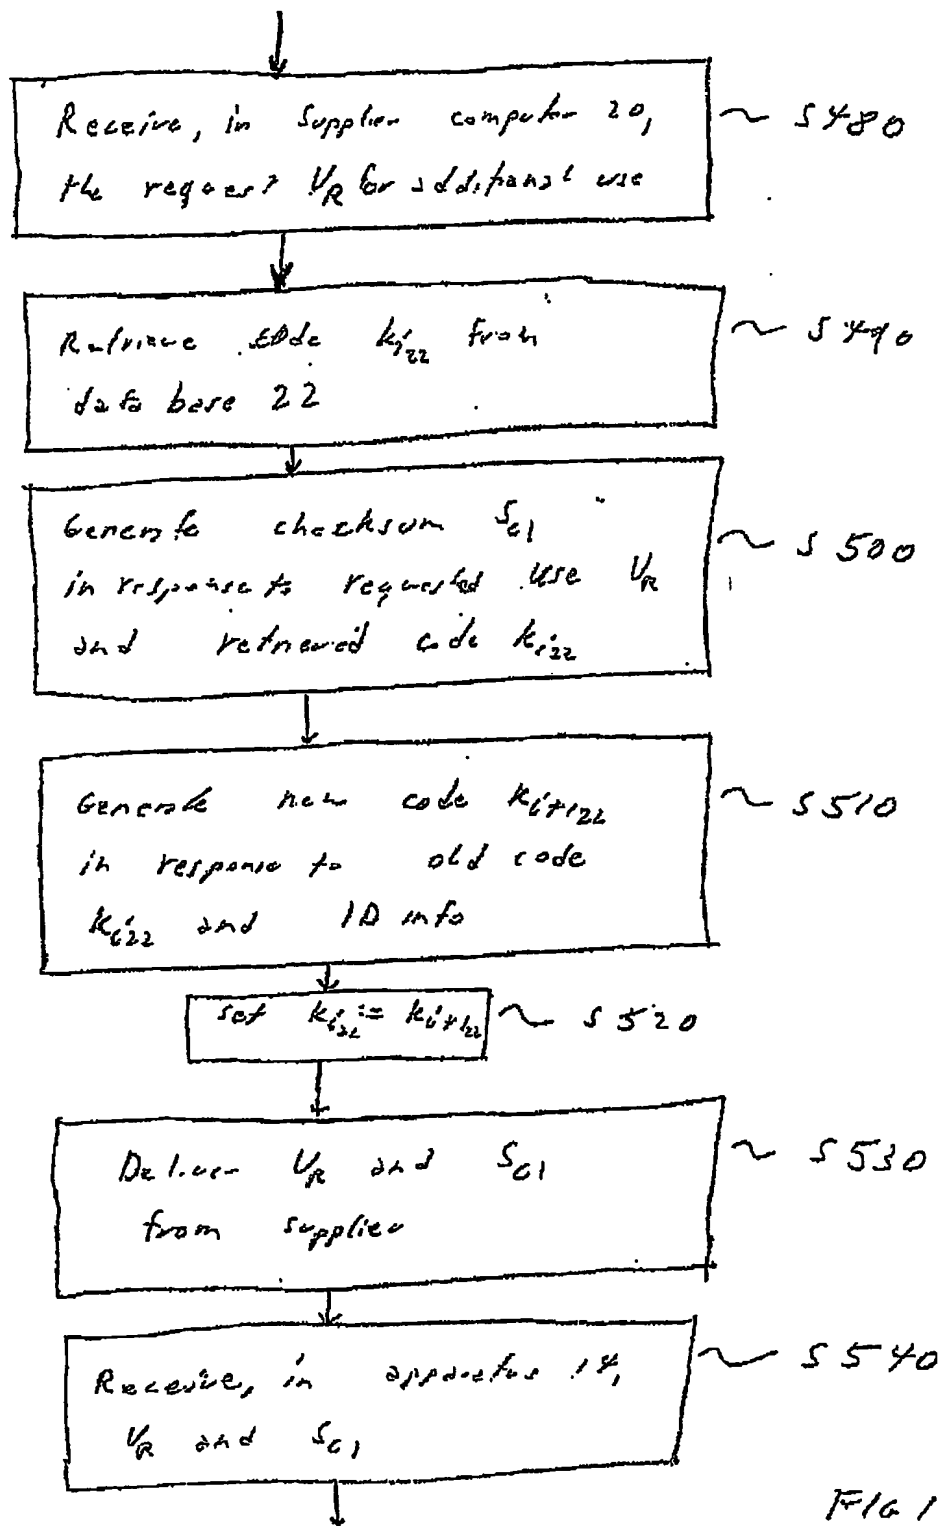 Receive, in supplier computer 20, ~ S480
the request VR for additional use
Retrieve code ki22 from ~ S490
data base 22
Generate checksum SC1
in response to requested use VR ~ S500
and retrieved code ki22
Generate new code ki+122 ~ S510
in response to old code
ki22 and ID info
set ki22 := ki+122 ~ S520
Deliver VR and SC1 ~ S530
from supplier
Receive, in apparatus 14, ~ S540
VR and SC1
FIG 1